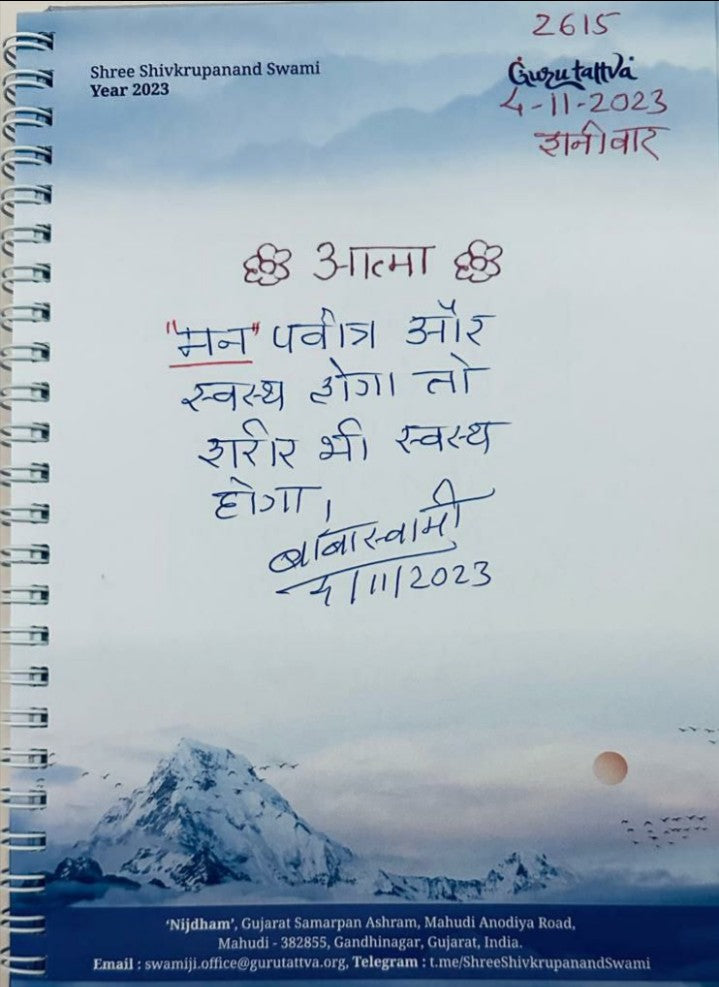 2615
Shree Shivkrupanand Swami
Year 2023
Gurutattva
4-11-2023
शनीवार
आत्मा
"मन" पवीत्र और
स्वस्थ होगा तो
शरीर भी स्वस्थ
होगा।
बाबास्वामी
4/11/2023
'Nijdham', Gujarat Samarpan Ashram, Mahudi Anodiya Road,
Mahudi - 382855, Gandhinagar, Gujarat, India.
Email : swamiji.office@gurutattva.org, Telegram : t.me/ShreeShivkrupanandSwami